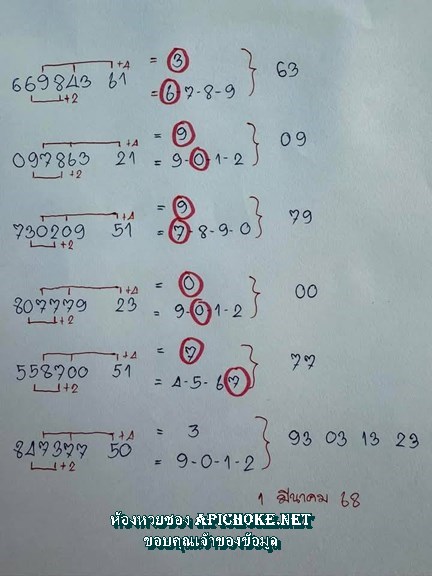 +4 = 3
669843 61 } 63
+2 = 6-7-8-9
+4 = 9
097863 21 = 9-0-1-2 } 09
+2
+4 = 9
730209 51 = 7-8-9-0 } 79
+2
+4 = 0
807779 23 = 9-0-1-2 } 00
+2
+4 = 7
558700 51 = 4-5-6-7 } 77
+2
+4 = 3
847377 50 = 9-0-1-2 } 93 03 13 23
+2
1 มีนาคม 68
ห้องหวยซอง APICHOKE.NET
ขอบคุณเจ้าของข้อมูล